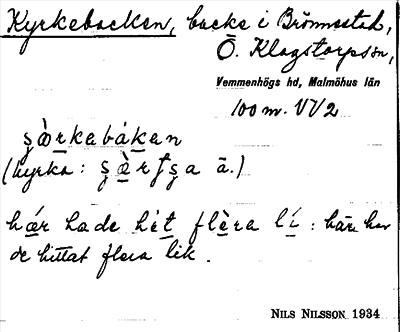 Kyrkebacken, backe i Brönnestad,
Ö. Klagstorpsn,
Vemmenhögs hd, Malmöhus län
100 m. VV2
ʂæ̀rkabákan
(kyrka: ʂæ̀rʃʂa ā.)
hær hade hit flèra lí : här har
de hittat flera lik.
NILS NILSSON 1934